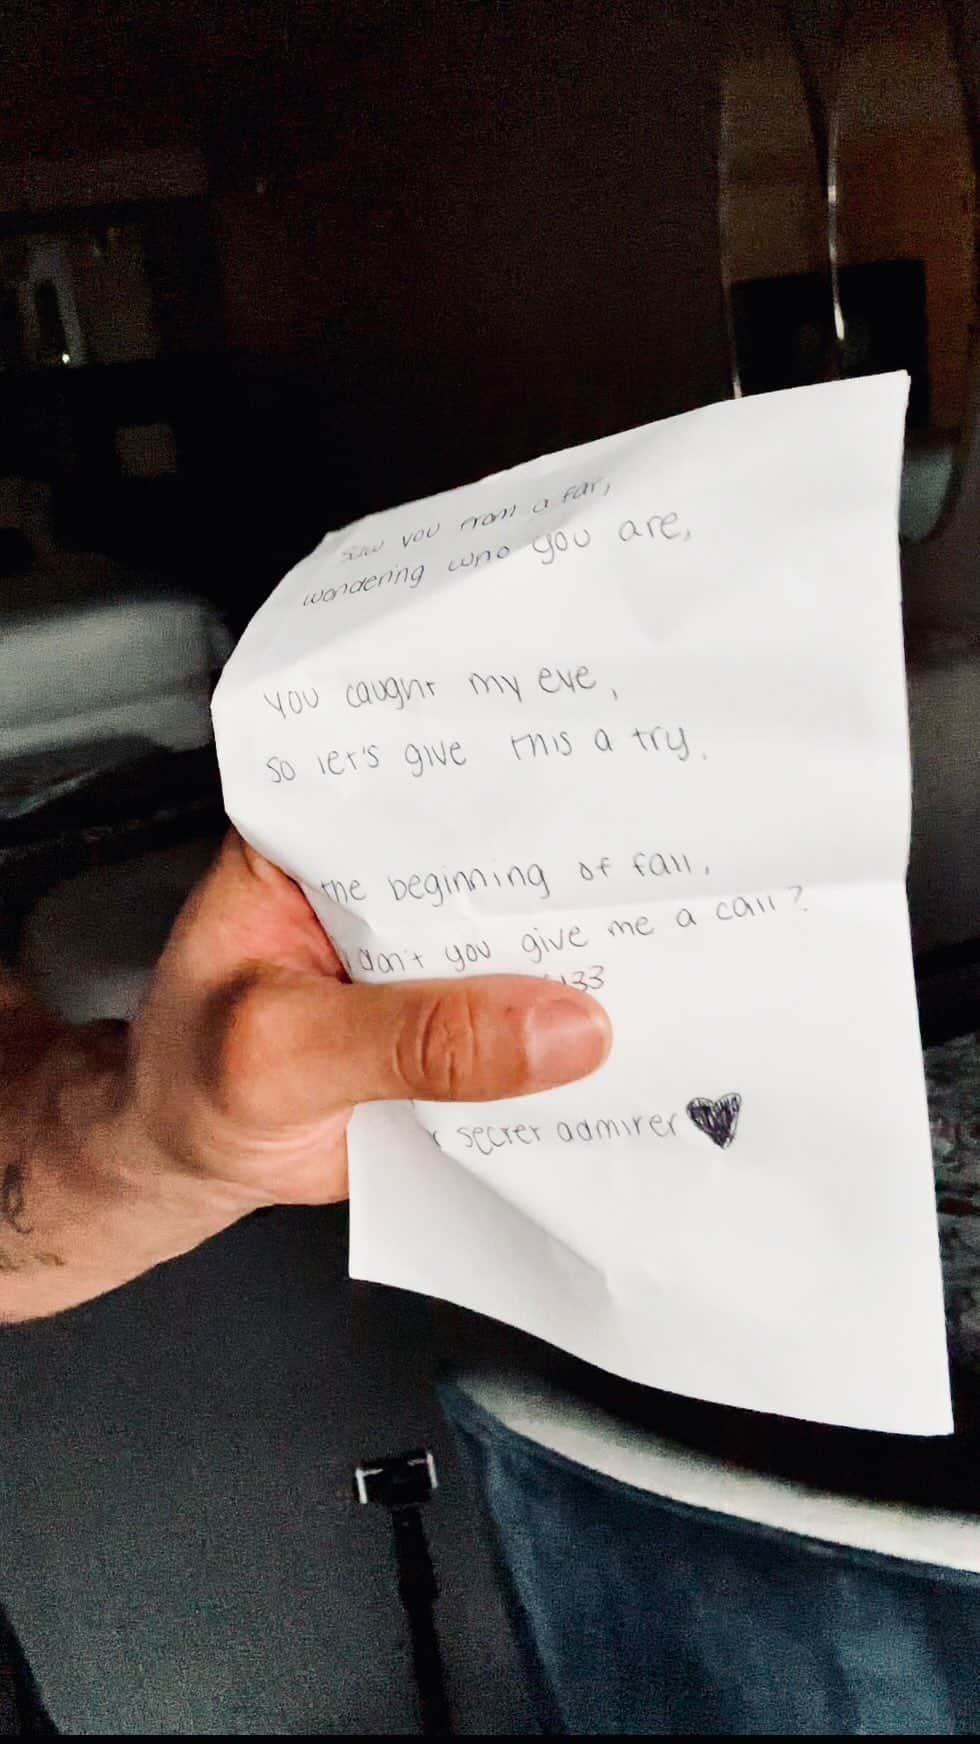 saw you from a far,
wondering who you are,
you caught my eye,
so let's give this a try.
the beginning of fall,
don't you give me a call?
133
secret admirer